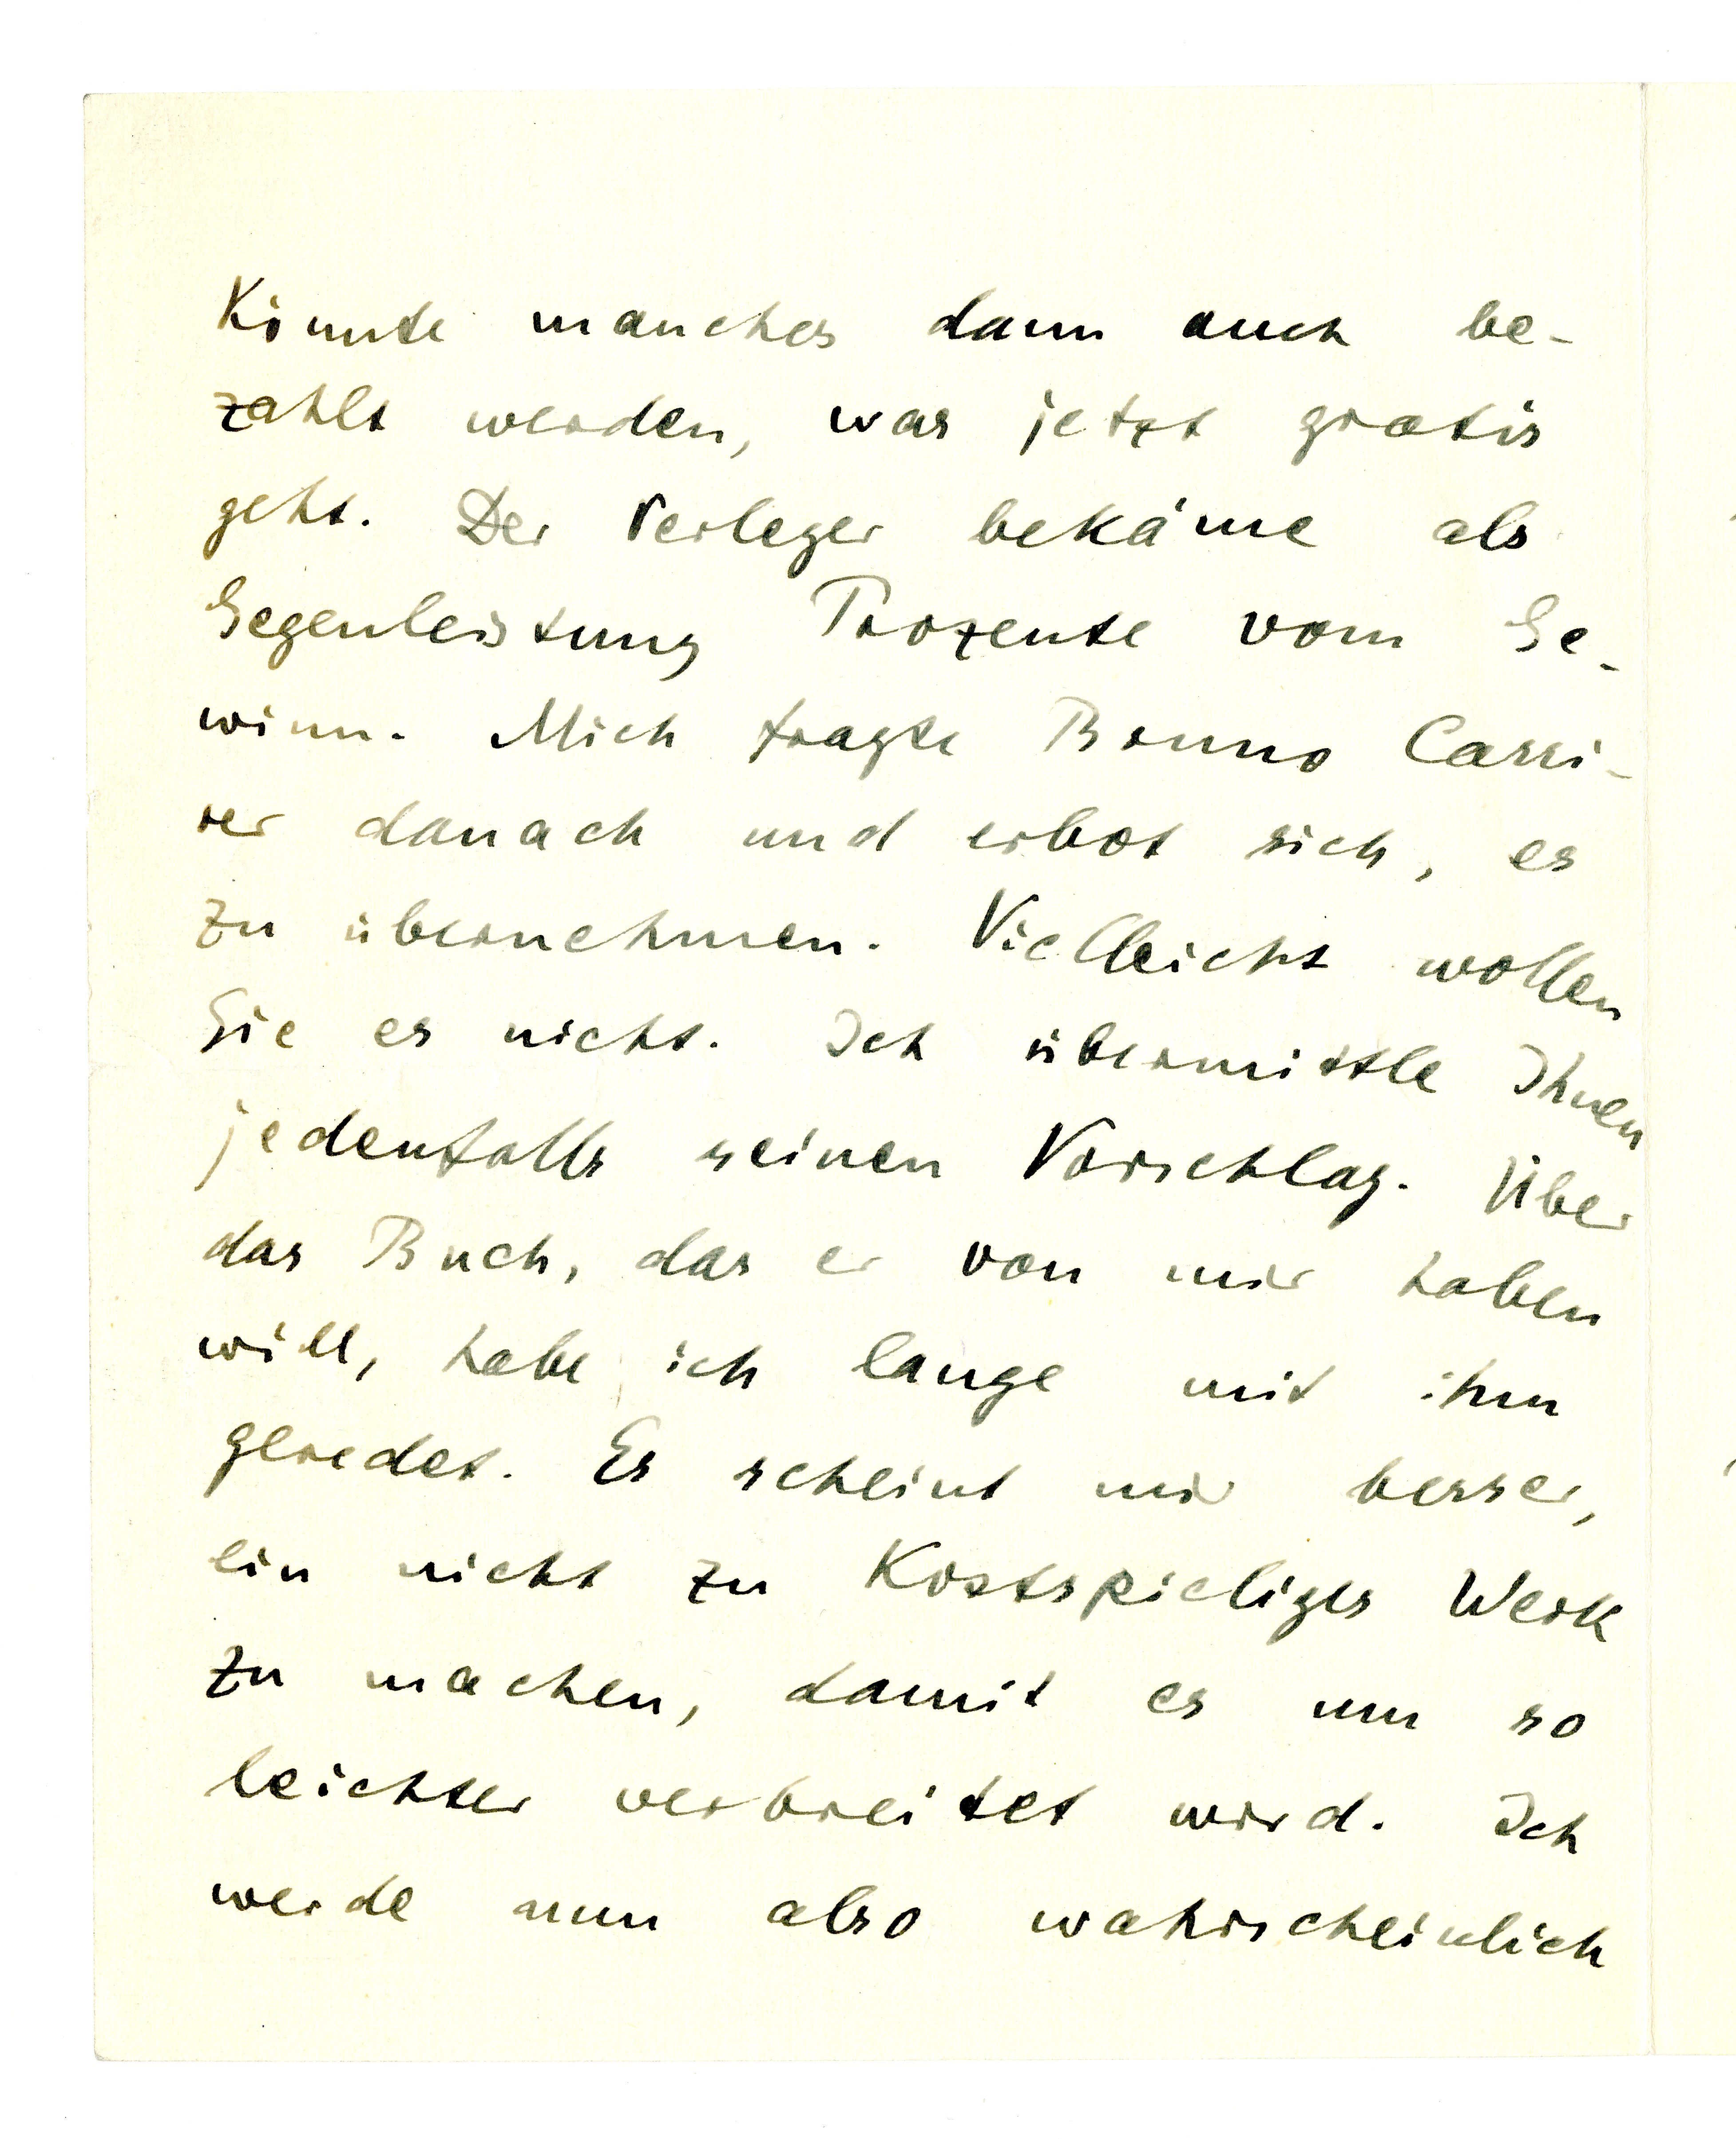 könnte manches dann auch be-
zahlt werden, was jetzt gratis
geht. Der Verleger bekäme als
Gegenleistung Prozente vom Ge-
winn. Mich fragte Bruno Cassi-
rer danach und erbot sich, es
zu übernehmen. Vielleicht wollen
Sie es nicht. Ich übermittle Ihnen
jedenfalls seinen Vorschlag. Über
das Buch, das er von mir haben
will, habe ich lange mit ihm
geredet. Es scheint mir besser,
ein nicht zu kostspieliges Werk
zu machen, damit es um so
leichter verbreitet wird. Ich
werde nun also wahrscheinlich